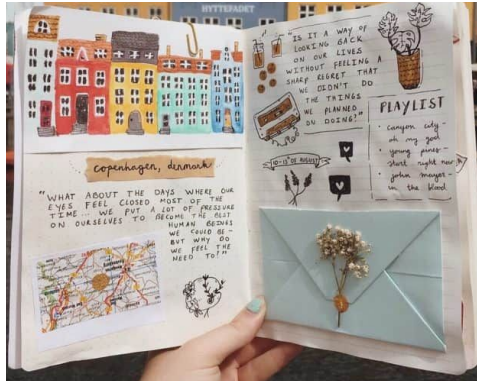 HYTTEFADET
copenhagen, denmark
"WHAT ABOUT THE DAYS WHERE OUR
EYES FEEL CLOSED MOST OF THE
TIME... WE PUT A LOT OF PRESSURE
ON OURSELVES TO BECOME THE BEST
HUMAN BEINGS
WE COULD BE -
BUT WHY DO
WE FEEL THE
NEED TO?"
"IS IT A WAY OF
LOOKING BACK
ON OUR LIVES
WITHOUT FEELING A
SHARP REGRET THAT
WE DIDN'T DO
THE THINGS
WE PLANNED
ON DOING?"
10-13TH OF AUGUST
PLAYLIST
• canyon city -
oh my god
• young pines -
start right now
• john mayer -
in the blood